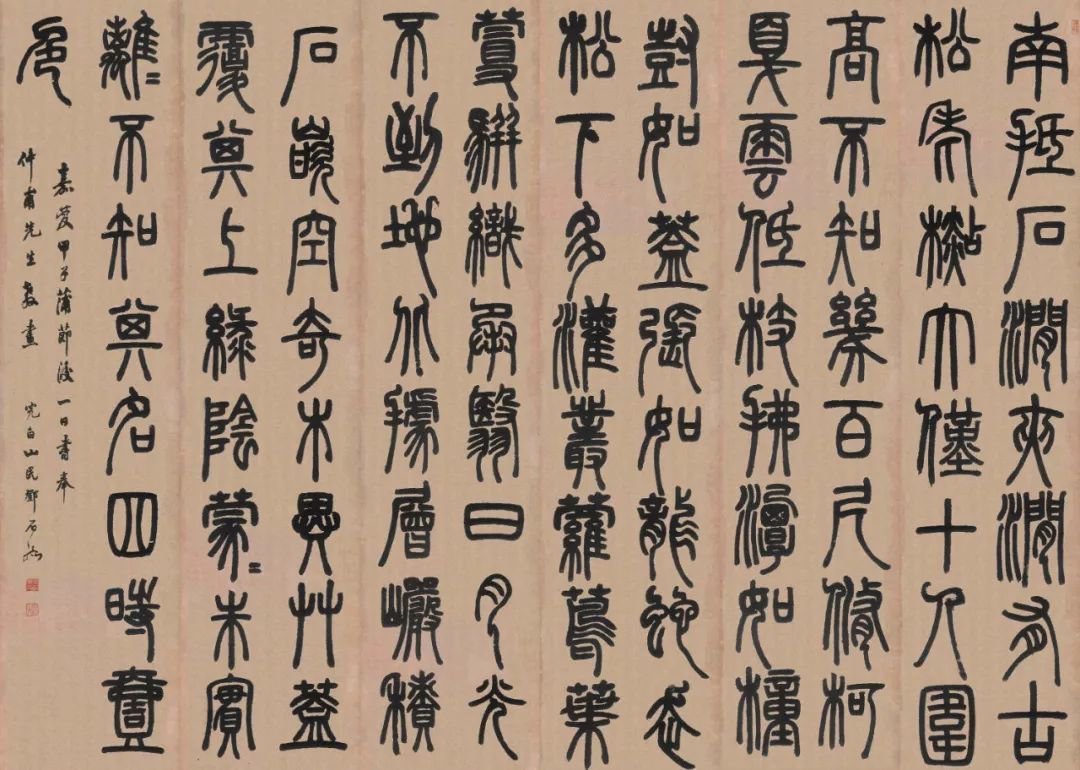 南抵石澗夾澗有古
松老檆大僅十人圍
高不知幾百尺修柯
戛雲低枝拂潭如幢
尌如蓋張如龍蛇走
松下多灌叢蘿蔦葉
蔓駢織承翳日月光
不到地北據層巖積
石嵌空奇木異艸蓋
覆其上綠陰蒙〻朱實
離〻不知其名四時壹
色
嘉慶甲子蒲節後一日書奉
仲甫先生教畫 完白山民鄧石如